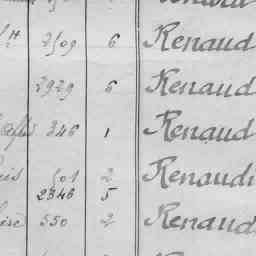 2509 6 Renaud
2929 6 Renaud
346 1 Renaud
501 2 Renaudi
2346 5
550 2 Renaud